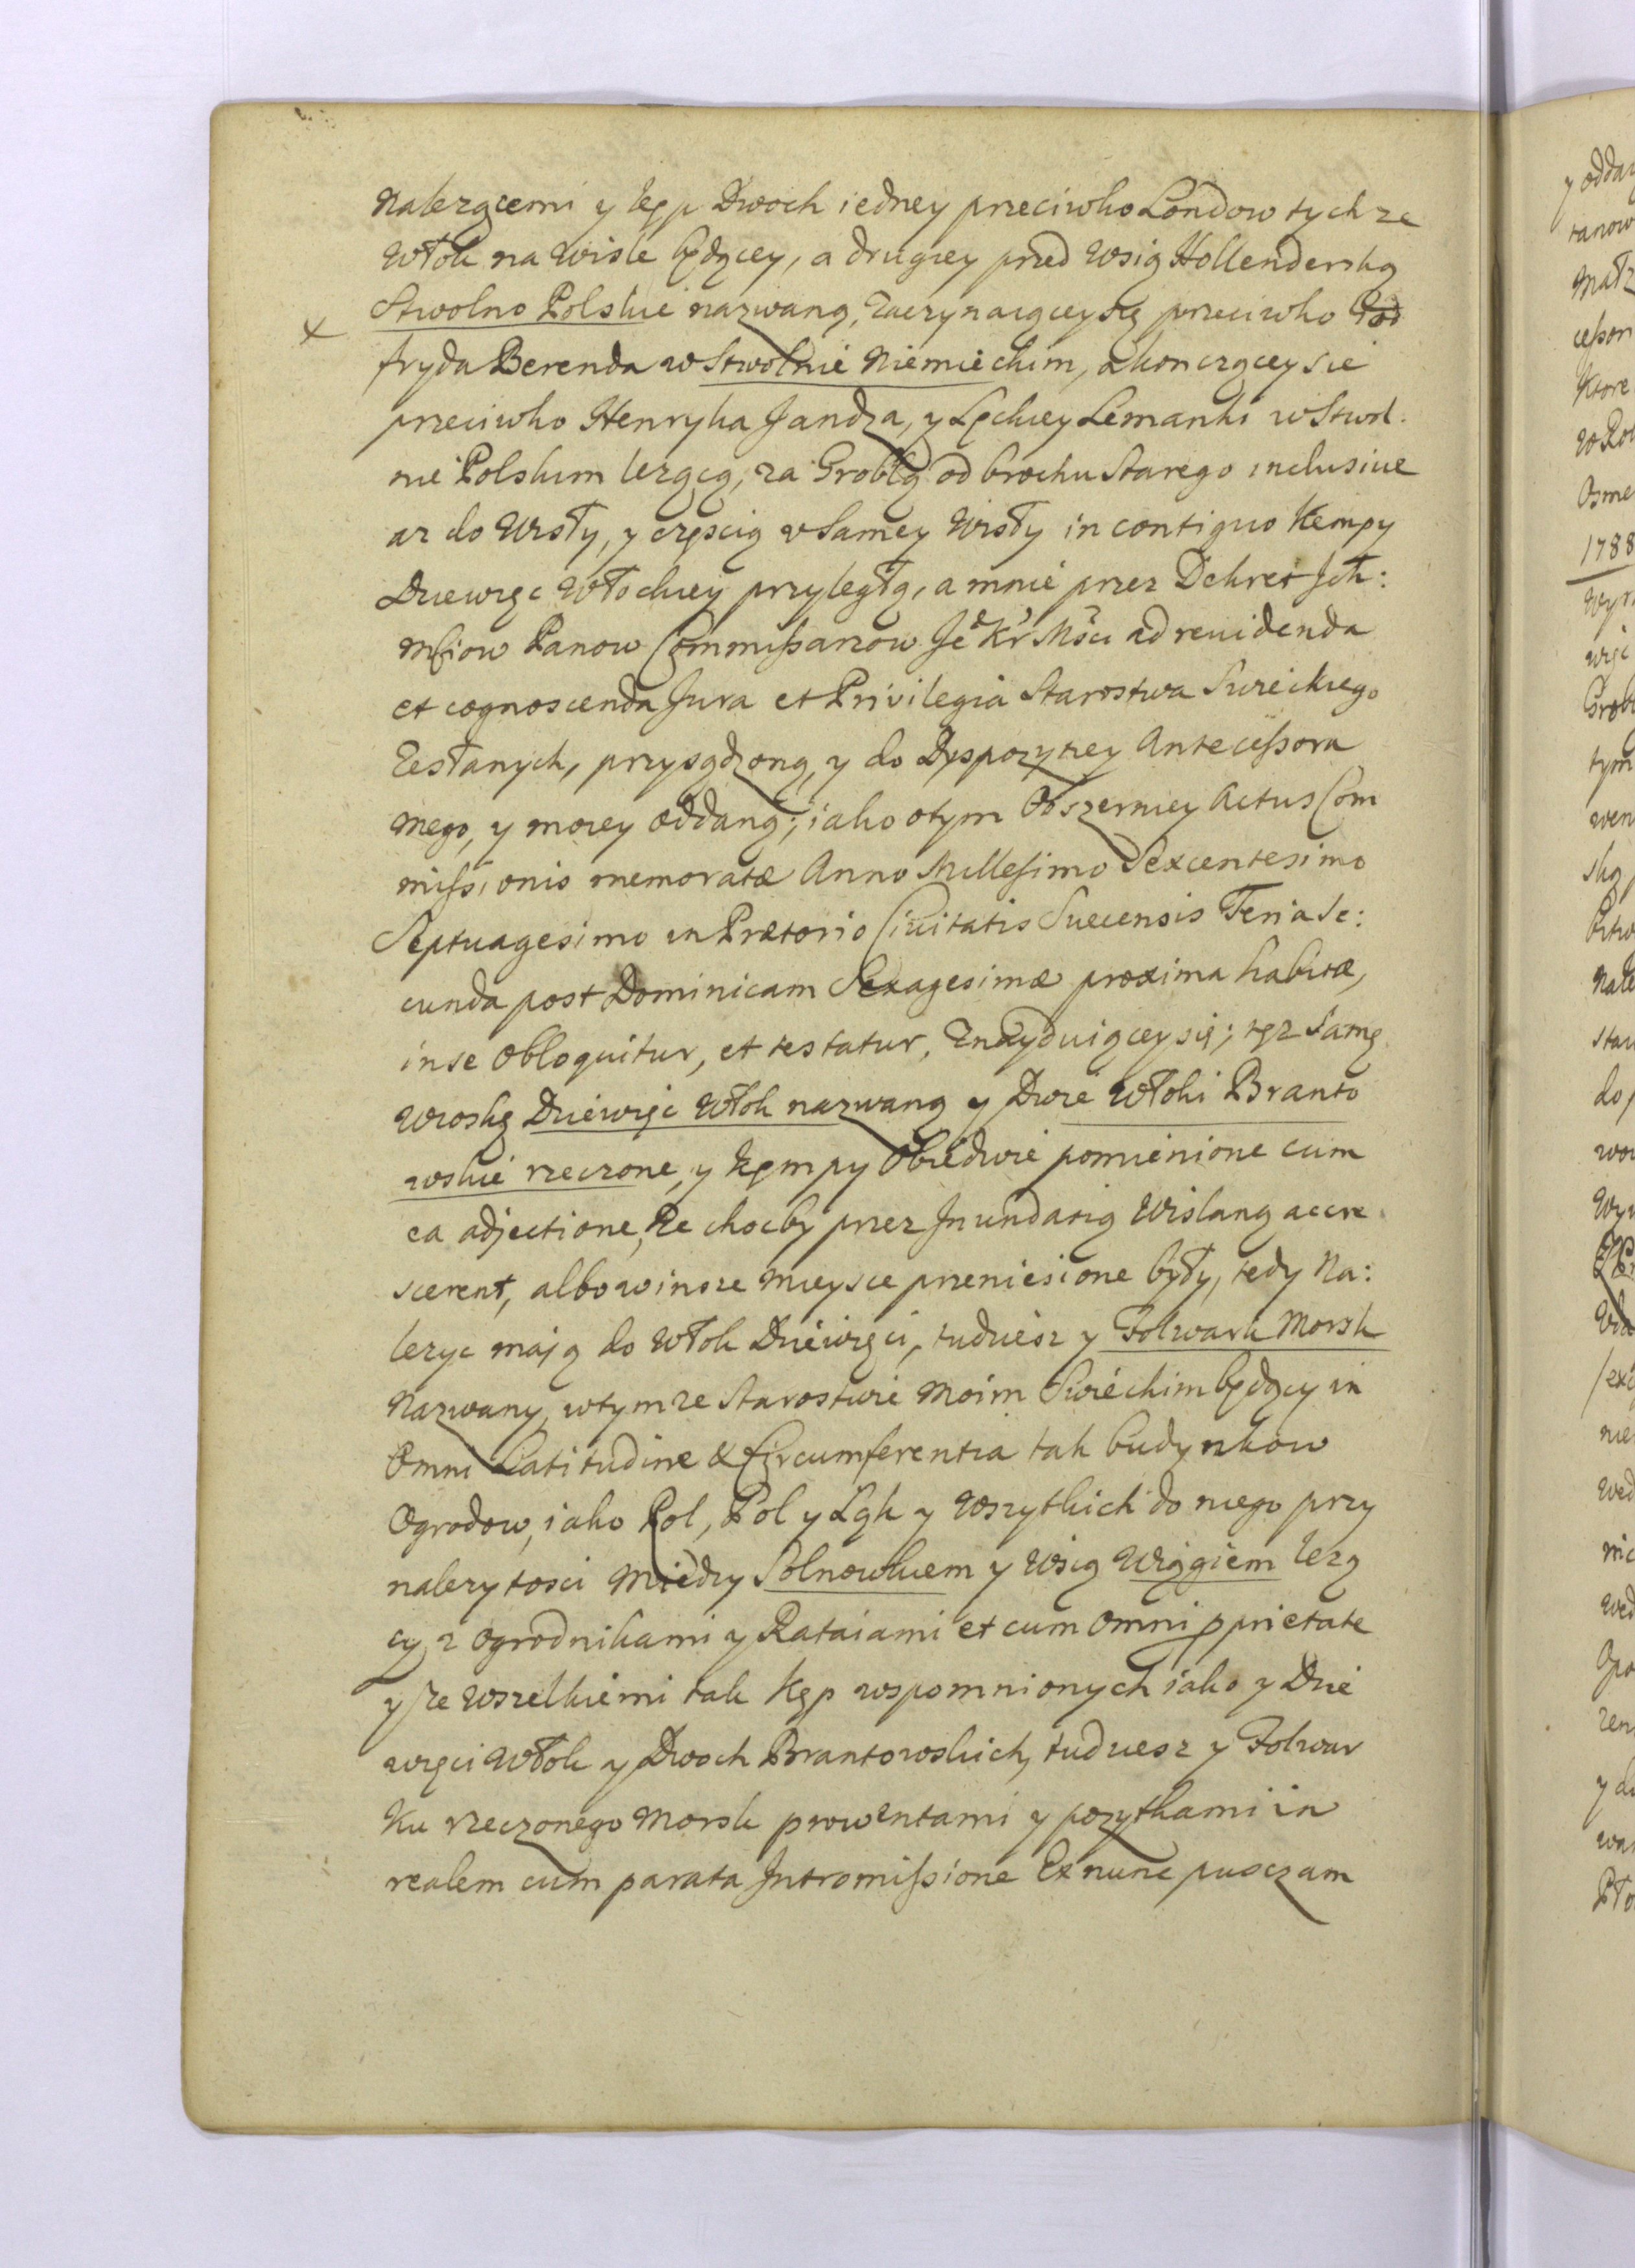 Należącemi y kęp Dwoch iedney przeciwko Londow tychże
Włok na Wisle będącey, a drugiey przed Wsią Hollenderską
x Stwolno Polskie nazwaną, Zaczynaiącey się przeciwko God
fryda Berenda w Stwolnie Niemieckim, a konczącey sie
przeciwko Henryka Jandza, y Lęckiey Lemanki w Stwol.
nie Polskim leżącą, za Groblą od brochu Starego inclusiue
aż do Wisły, y częscią w Samey Wisły in contiguo Kempy
Dziewięc Włockiey przyległą, a mnie przez Dekret Ich:
Mciow Panow Commissarzow Je° Kr Mści ad reuidenda
et cognoscenda Jura et Privilegia Starostwa Swieckiego
Zesłanych, przysądzoną, y do Dyspozytiey Antecessora
mego, y moiey oddaną; iako otym Obszerniey Actus Com
missionis memoratæ Anno Millesimo Sexcentesimo
Septuagesimo in Prætorio Ciuitatis Suecensis Feria Se:
cunda post Dominicam Sexagesimæ proxima habitæ,
in se Obloquitur, et testatur, Znayduiącey się; tęż Samę
Wioskę Dziewięc Włok nazwaną y Dwie Włoki Branto
wskie rzeczone, y kęmpy Obiedwie pomienione cum
ea adjectione, Że chocby przez Inundatią Wislaną accre
scerent, albo w insze mieysce przeniesione były, tedy Na:
leżyc maią do Włok Dziewięci, tudziesz y Folwark Morsk
Nazwany, w tymże Starostwie Moim Swieckim będący in
Omni Latitudine & Circumferentia tak budynkow
Ogrodow, iako Rol, Pol y Łąk y Wszytkich do niego przy
nalezytosci Miedzy Solnowkiem y Wsią Wiągiem leżą
cy, z Ogrodnikami y Rataiami et cum Omni pprietate
y ze Wszelkiemi tak Kęp wspomnionych iako y Dzie
więci Włok y Dwoch Brantowskich, tudziesz y Folwar
Ku rzeczonego Morsk prowentami y pozytkami in
realem cum parata Intromissione Ex nunc puszczam